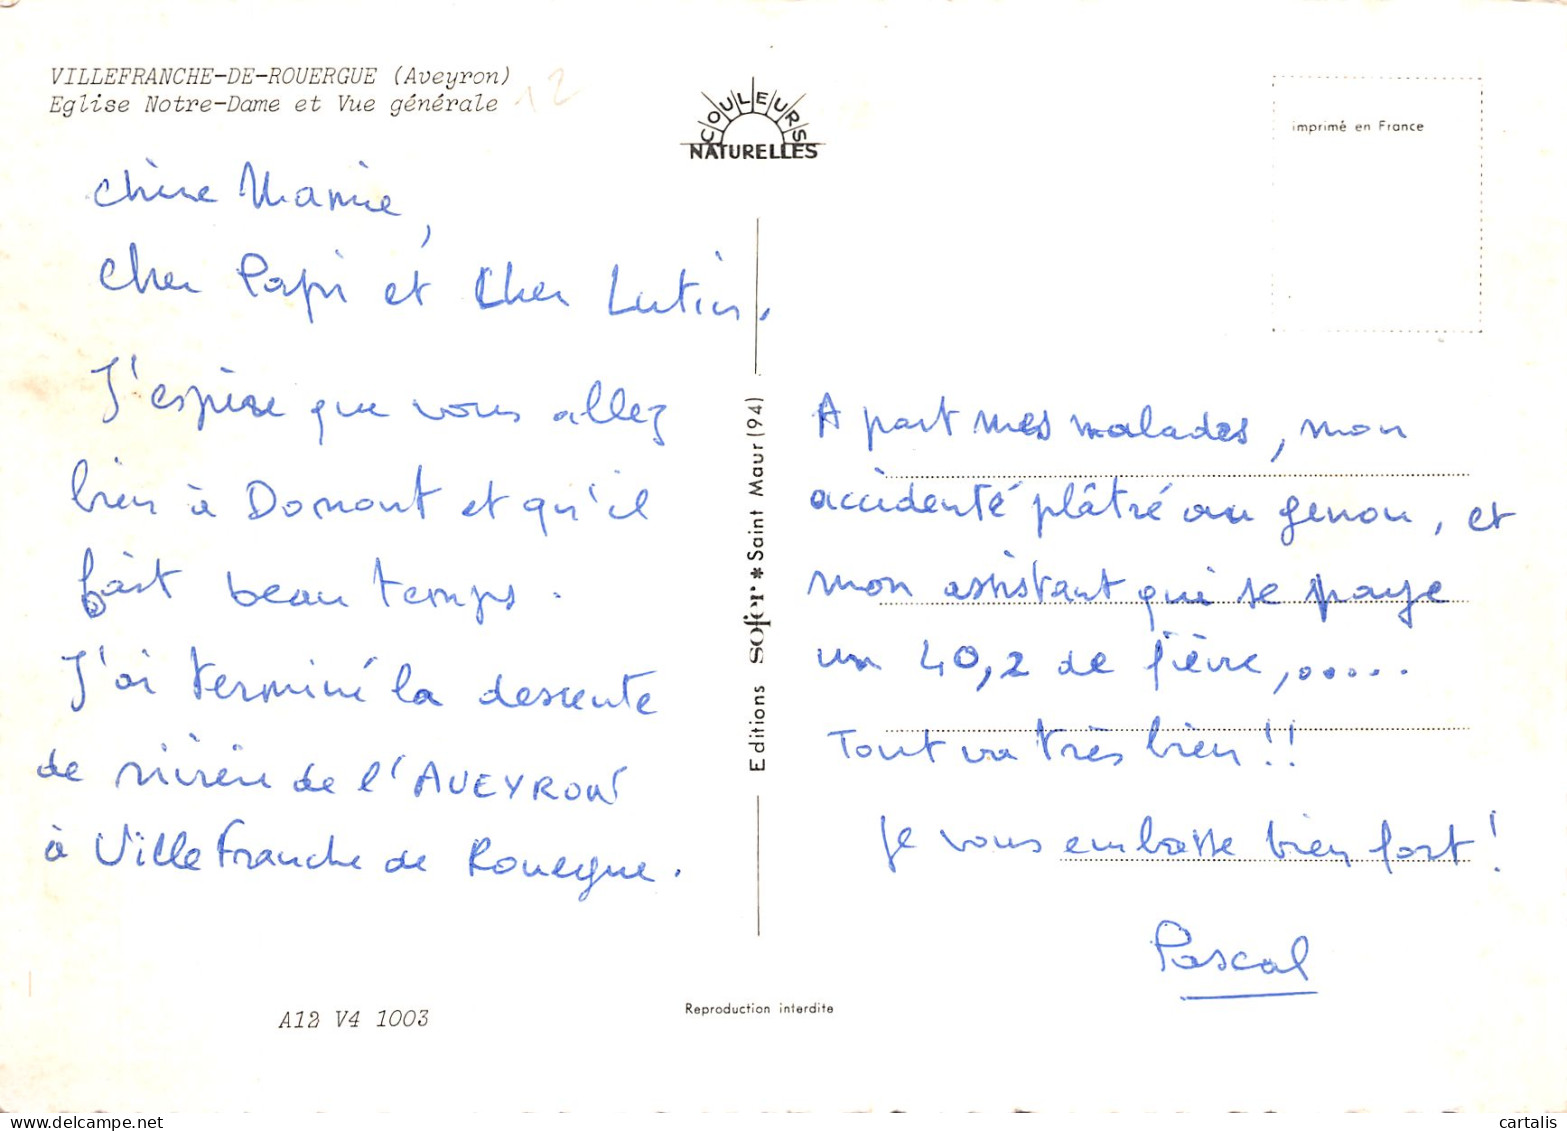 VILLEFRANCHE-DE-ROUERGUE (Aveyron)
Eglise Notre-Dame et Vue générale
12
COULEURS
NATURELLES
imprimé en France
Chère Mamie,
Cher Papi et Cher Lutin.
J'espère que vous allez
bien à Domont et qu'il
fait beau temps.
J'ai terminé la descente
de rivière de l'AVEYRON
à Villefranche de Rouergue.
Editions sofer * Saint Maur (94)
A part mes malades, mon
accidenté plâtré au genou, et
mon assistant qui se paye
un 40,2 de fièvre,.....
Tout va très bien!!
Je vous embrasse bien fort!
Pascal
A12 V4 1003
Reproduction interdite
cartalis